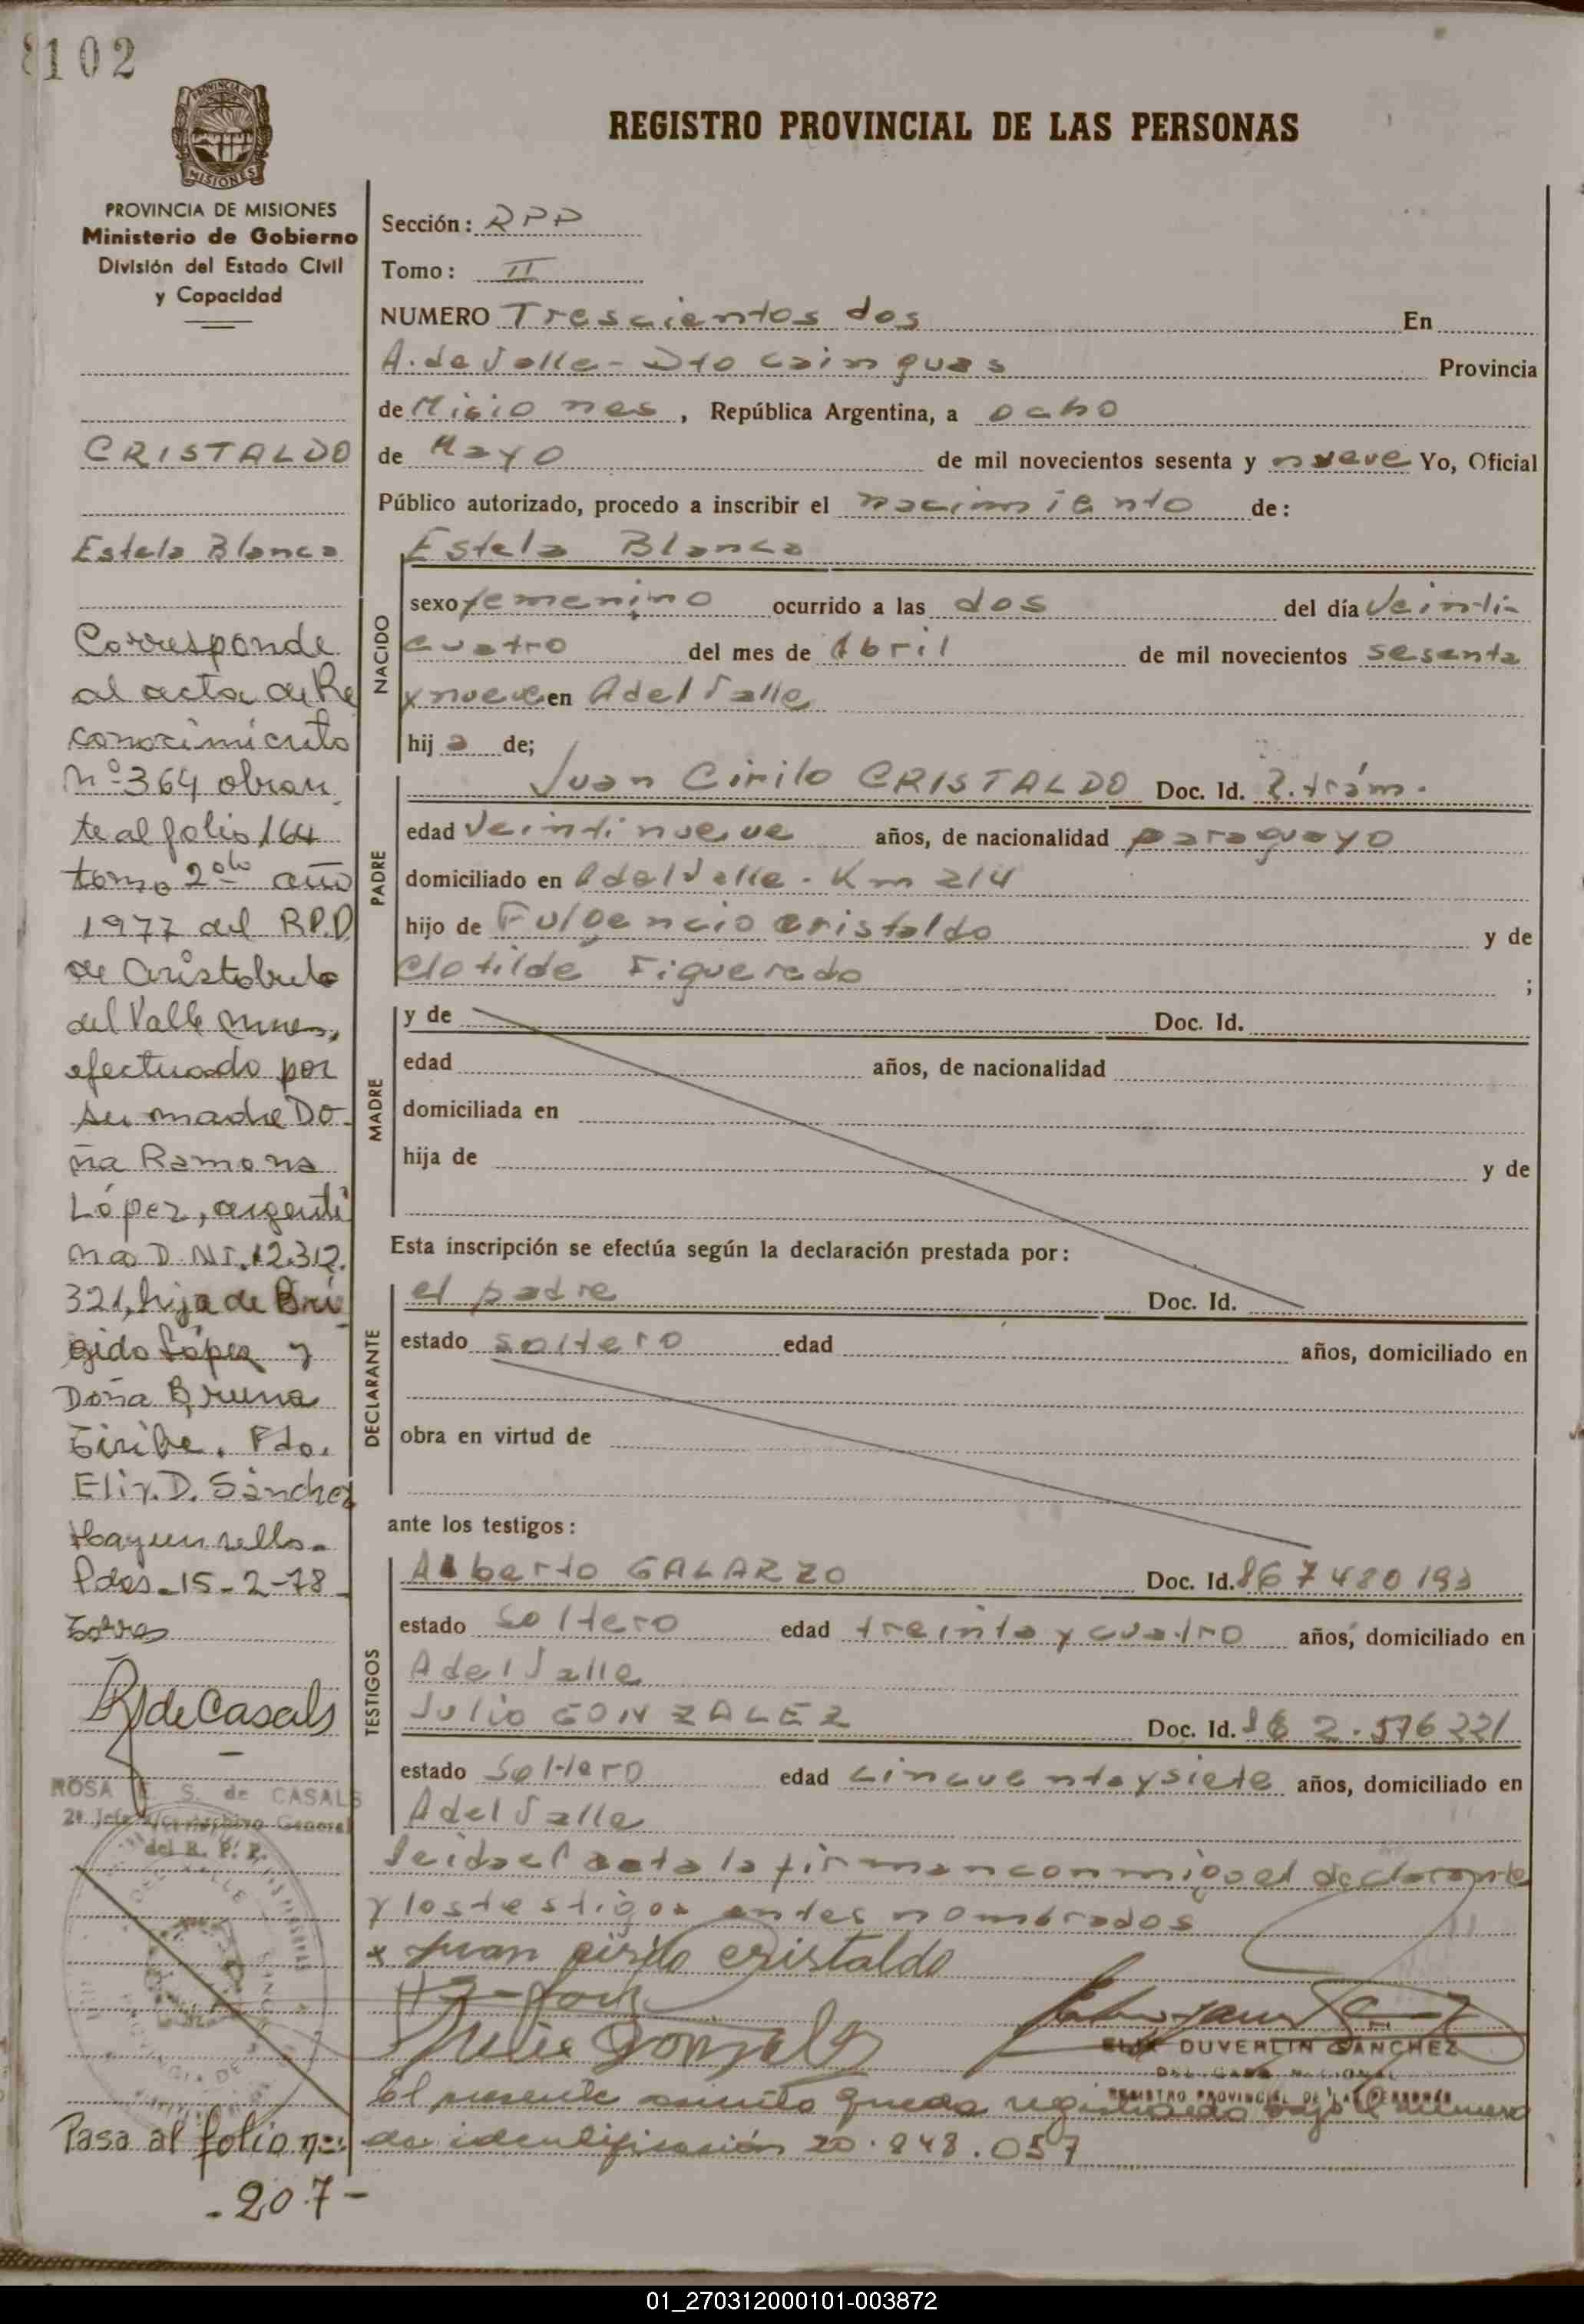 102
PROVINCIA DE MISIONES
REGISTRO PROVINCIAL DE LAS PERSONAS
PROVINCIA DE MISIONES
Ministerio de Gobierno
División del Estado Civil
y Capacidad
CRISTALDO
Estela Blanca
Corresponde
al acta de Re
conocimiento
Nº 364 obran
te al folio 164
tomo 2do año
1977 del R.P.P.
de Aristobulo
del Valle Mnes,
efectuado por
su madre Do-
ña Ramona
López, argenti
na D.NI. 12.312.
321, hija de Bri
gido López y
Doña Bruna
Fdo.
Elix. D. Sánchez
Hay un sello.
Pdas. 15-2-78
Torres
R de Casals
ROSA E. S. de CASALS
2º Jefe Archivo General
del R. P. P.
Pasa al folio nº:
- 207 -
Sección: RPP
Tomo: II
NUMERO Trescientos dos En
A. de Valle - Dto Cainguas Provincia
de Misiones, República Argentina, a ocho
de Mayo de mil novecientos sesenta y nueve Yo, Oficial
Público autorizado, procedo a inscribir el nacimiento de:
NACIDO
Estela Blanca
sexo femenino ocurrido a las dos del día Veinti-
cuatro del mes de Abril de mil novecientos sesenta
y nueve en A del Valle
hija de;
PADRE
Juan Cirilo CRISTALDO Doc. Id. R. trám.
edad Veintinueve años, de nacionalidad paraguayo
domiciliado en A del Valle - Km 214
hijo de Fulgencio Cristaldo y de
Clotilde Figueredo ;
MADRE
y de Doc. Id.
edad años, de nacionalidad
domiciliada en
hija de y de
Esta inscripción se efectúa según la declaración prestada por:
DECLARANTE
el padre Doc. Id.
estado soltero edad años, domiciliado en
obra en virtud de
ante los testigos:
TESTIGOS
Alberto GALARZO Doc. Id.
estado Soltero edad treinta y cuatro años, domiciliado en
A del Valle
Julio GONZALEZ Doc. Id. 2.576221
estado Soltero edad cincuenta y siete años, domiciliado en
A del Valle
leida el acta la firman conmigo el declarante
y los testigos antes nombrados
x Juan cirilo cristaldo
Julio Gonzalez
ELIX DUVERLIN SANCHEZ
REGISTRO PROVINCIAL DE LAS PERSONAS
El presente asiento queda registrado bajo el número
de identificación 20.848.057
01_270312000101-003872